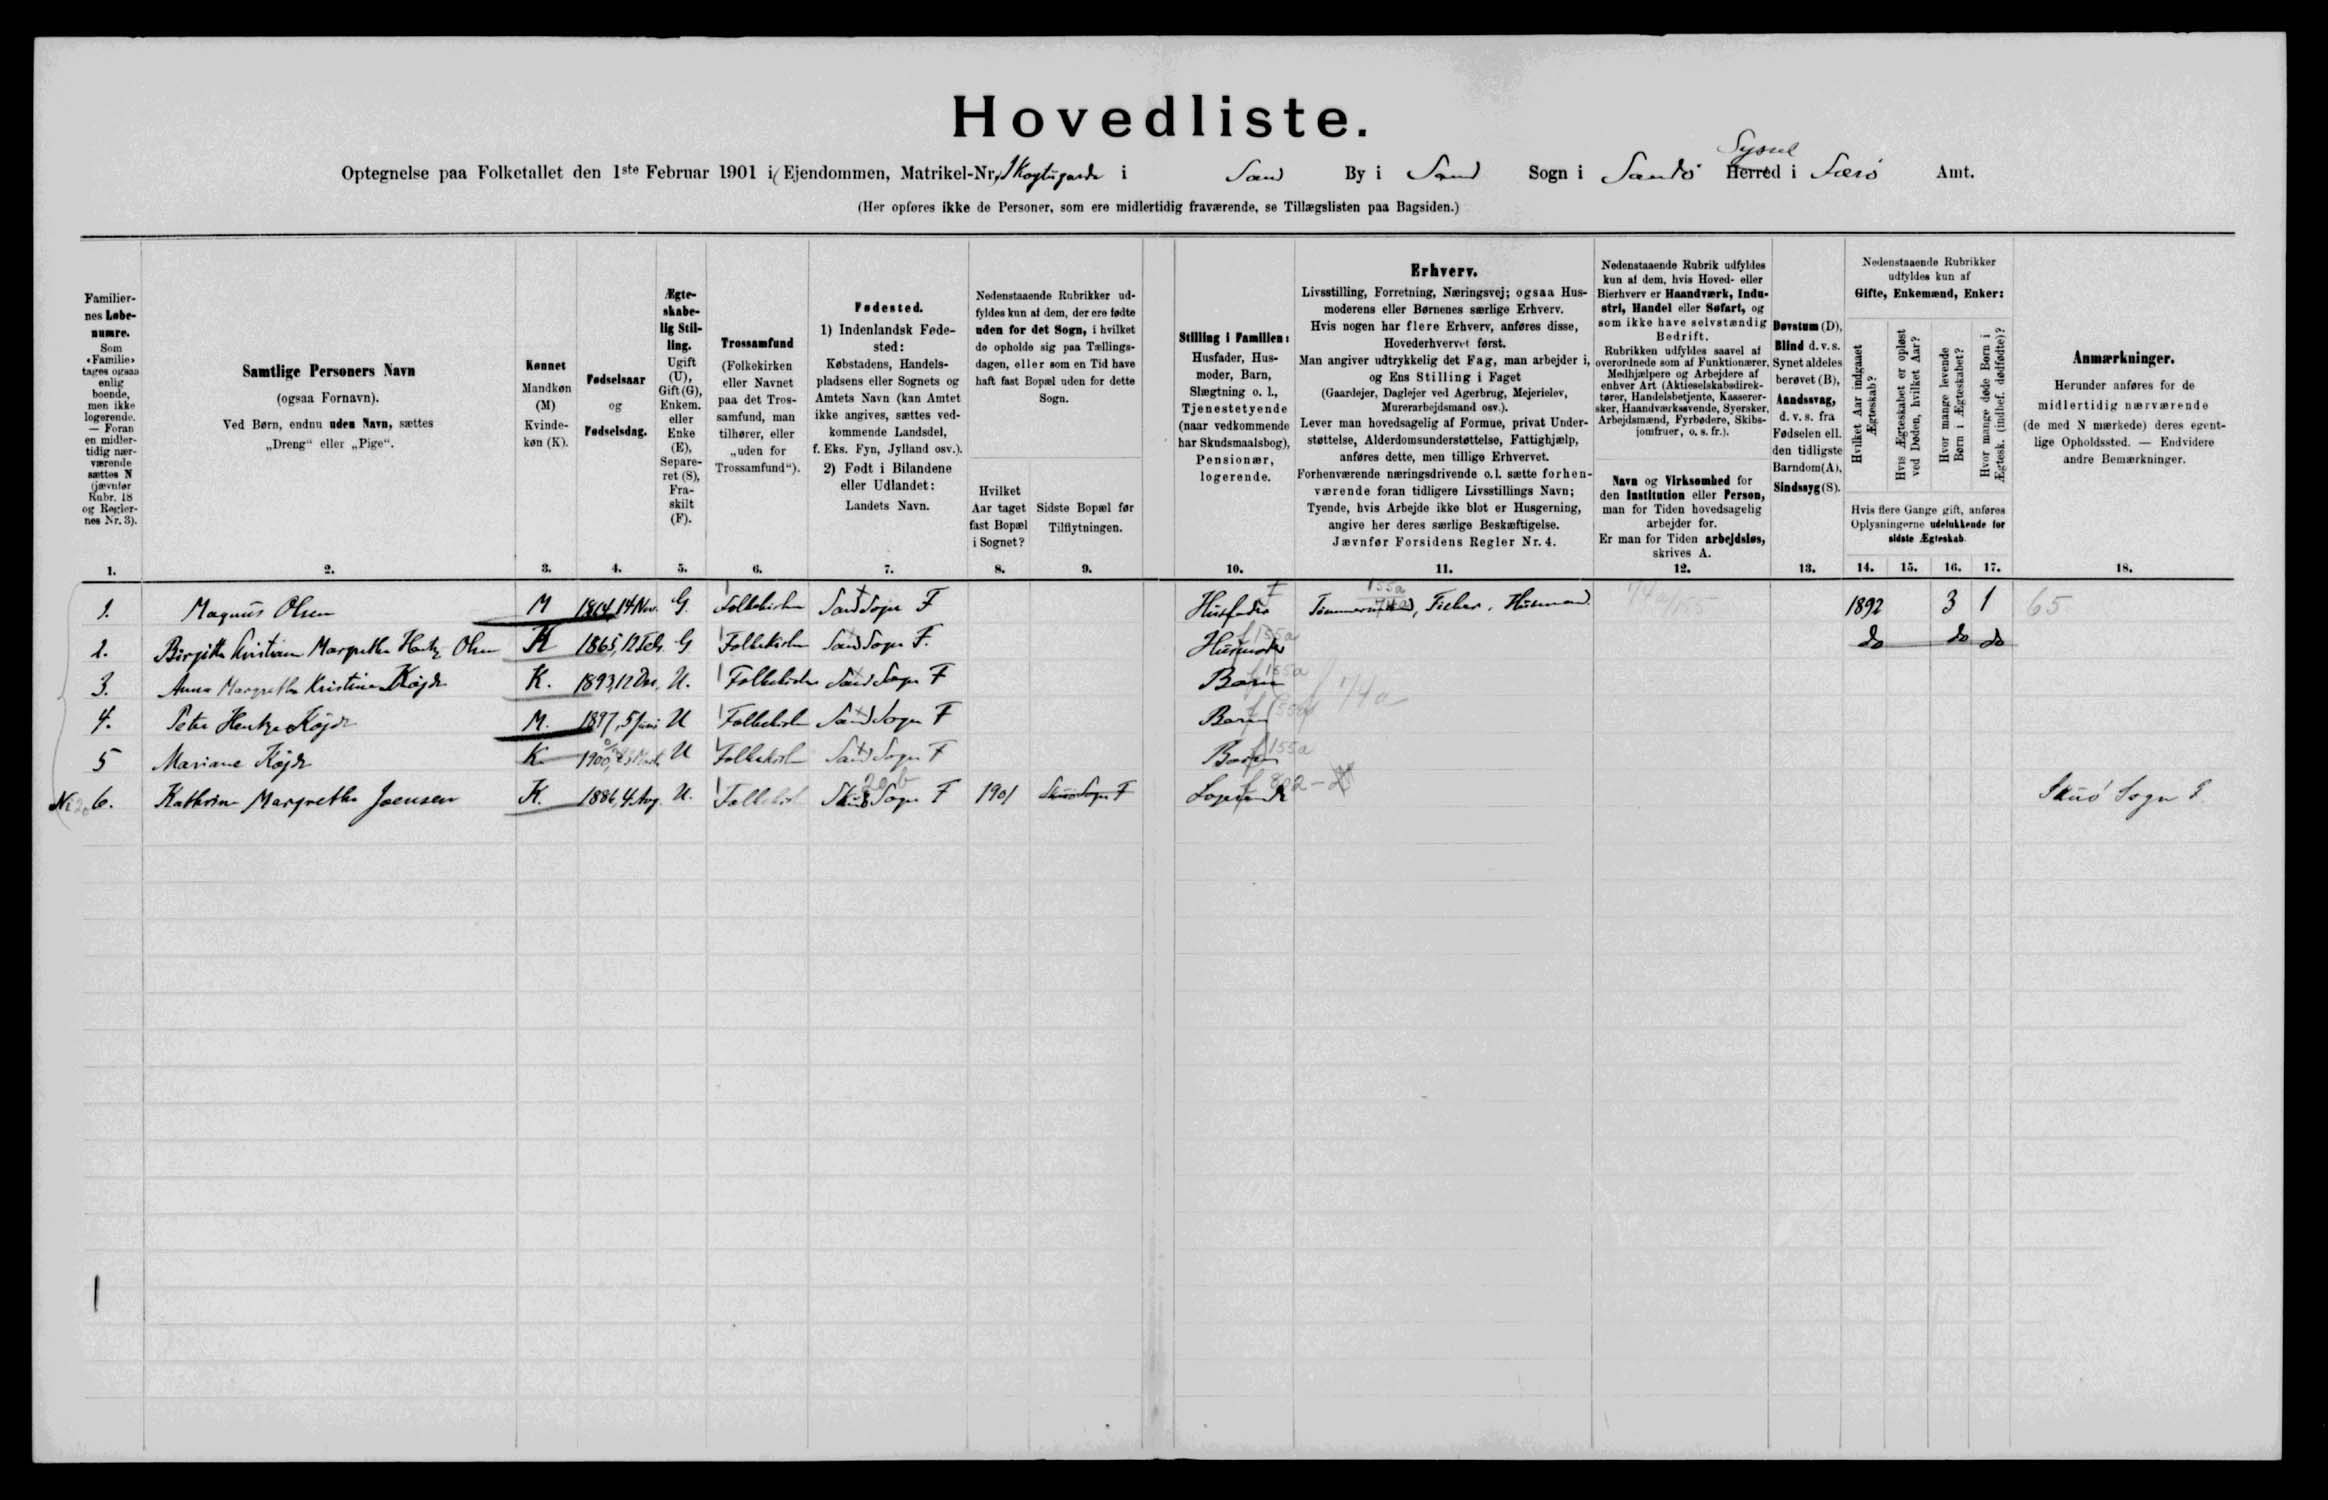 Hovedliste.
Optegnelse paa Folketallet den 1ste Februar 1901 i Ejendommen, Matrikel-Nr. i Sand By i Sand Sogn i Sandö Herred Syssel i Færö Amt.
(Her opføres ikke de Personer, som ere midlertidig fraværende, se Tillægslisten paa Bagsiden.)
Familier-
nes Løbe-
numre.
Som
«Familie»
tages ogsaa
enlig
boende,
men ikke
logerende.
— Foran
en midler-
tidig nær-
værende
sættes N
(jævnfør
Rubr. 18
og Regler-
nes Nr. 3).
1.
Samtlige Personers Navn
(ogsaa Fornavn).
Ved Børn, endnu uden Navn, sættes
„Dreng“ eller „Pige“.
2.
Kønnet
Mandkøn
(M)
Kvinde-
køn (K).
3.
Fødselsaar
og
Fødselsdag.
4.
Ægte-
skabe-
lig Stil-
ling.
Ugift
(U),
Gift (G),
Enkem.
eller
Enke
(E),
Separe-
ret (S),
Fra-
skilt
(F).
5.
Trossamfund
(Folkekirken
eller Navnet
paa det Tros-
samfund, man
tilhører, eller
„uden for
Trossamfund“).
6.
Fødested.
1) Indenlandsk Føde-
sted:
Købstadens, Handels-
pladsens eller Sognets og
Amtets Navn (kan Amtet
ikke angives, sættes ved-
kommende Landsdel,
f. Eks. Fyn, Jylland osv.).
2) Født i Bilandene
eller Udlandet:
Landets Navn.
7.
Nedenstaaende Rubrikker ud-
fyldes kun af dem, der ere fødte
uden for det Sogn, i hvilket
de opholde sig paa Tællings-
dagen, eller som en Tid have
haft fast Bopæl uden for dette
Sogn.
Hvilket
Aar taget
fast Bopæl
i Sognet?
8.
Sidste Bopæl før
Tilflytningen.
9.
Stilling i Familien:
Husfader, Hus-
moder, Barn,
Slægtning o. l.,
Tjenestetyende
(naar vedkommende
har Skudsmaalsbog),
Pensionær,
logerende.
10.
Erhverv.
Livsstilling, Forretning, Næringsvej; ogsaa Hus-
moderens eller Børnenes særlige Erhverv.
Hvis nogen har flere Erhverv, anføres disse,
Hovederhvervet først.
Man angiver udtrykkelig det Fag, man arbejder i,
og Ens Stilling i Faget
(Gaardejer, Daglejer ved Agerbrug, Mejerielev,
Murerarbejdsmand osv.).
Lever man hovedsagelig af Formue, privat Under-
støttelse, Alderdomsunderstøttelse, Fattighjælp,
anføres dette, men tillige Erhvervet.
Forhenværende næringsdrivende o.l. sætte forhen-
værende foran tidligere Livsstillings Navn;
Tyende, hvis Arbejde ikke blot er Husgerning,
angive her deres særlige Beskæftigelse.
Jævnfør Forsidens Regler Nr. 4.
11.
Nedenstaaende Rubrik udfyldes
kun af dem, hvis Hoved- eller
Bierhverv er Haandværk, Indu-
stri, Handel eller Søfart, og
som ikke have selvstændig
Bedrift.
Rubrikken udfyldes saavel af
overordnede som af Funktionærer,
Medhjælpere og Arbejdere af
enhver Art (Aktieselskabsdirek-
tører, Handelsbetjente, Kasserer-
sker, Haandværkssvende, Syersker,
Arbejdsmænd, Fyrbødere, Skibs-
jomfruer, o. s. fr.).
Navn og Virksomhed for
den Institution eller Person,
man for Tiden hovedsagelig
arbejder for.
Er man for Tiden arbejdsløs,
skrives A.
12.
Døvstum (D),
Blind d. v. s.
Synet aldeles
berøvet (B),
Aandssvag,
d. v. s. fra
Fødselen ell.
den tidligste
Barndom (A),
Sindssyg (S).
13.
Nedenstaaende Rubrikker
udfyldes kun af
Gifte, Enkemænd, Enker:
Hvilket Aar indgaaet
Ægteskab?
Hvis Ægteskabet er opløst
ved Døden, hvilket Aar?
Hvor mange levende
Børn i Ægteskabet?
Hvor mange døde Børn i
Ægtesk. (indbef. dødfødte)?
Hvis flere Gange gift, anføres
Oplysningerne udelukkende for
sidste Ægteskab.
14. 15. 16. 17.
Anmærkninger.
Herunder anføres for de
midlertidig nærværende
(de med N mærkede) deres egent-
lige Opholdssted. — Endvidere
andre Bemærkninger.
18.
1. Magnus Olsen M 1864, 14 Nov. G. Folkekirken Sand Sogn F Husfader 155a Tømmermand, Fisker, Husmand 1892 3 1 65
2. Birgitte Kristiane Margrethe Hentze Olsen K 1865, 12 Feb. G Folkekirken Sand Sogn F. Husmoder f 155a do do do
3. Anna Margrethe Kristine Køjde K. 1893, 12 Dec. U. Folkekirken Sand Sogn F Barn f 155a 74a
4. Peter Hentze Køjde M. 1897, 5 Juni U Folkekirken Sand Sogn F Barn f 155a
5 Mariane Køjde K. 1900, U Folkekirken Sand Sogn F Barn f 155a
N 6. Kathrine Margrethe Joensen K. 1886, 4 Aug. U. Folkekirk Skuø Sogn F 1901 Skuø Sogn F Logerende Skuø Sogn F.